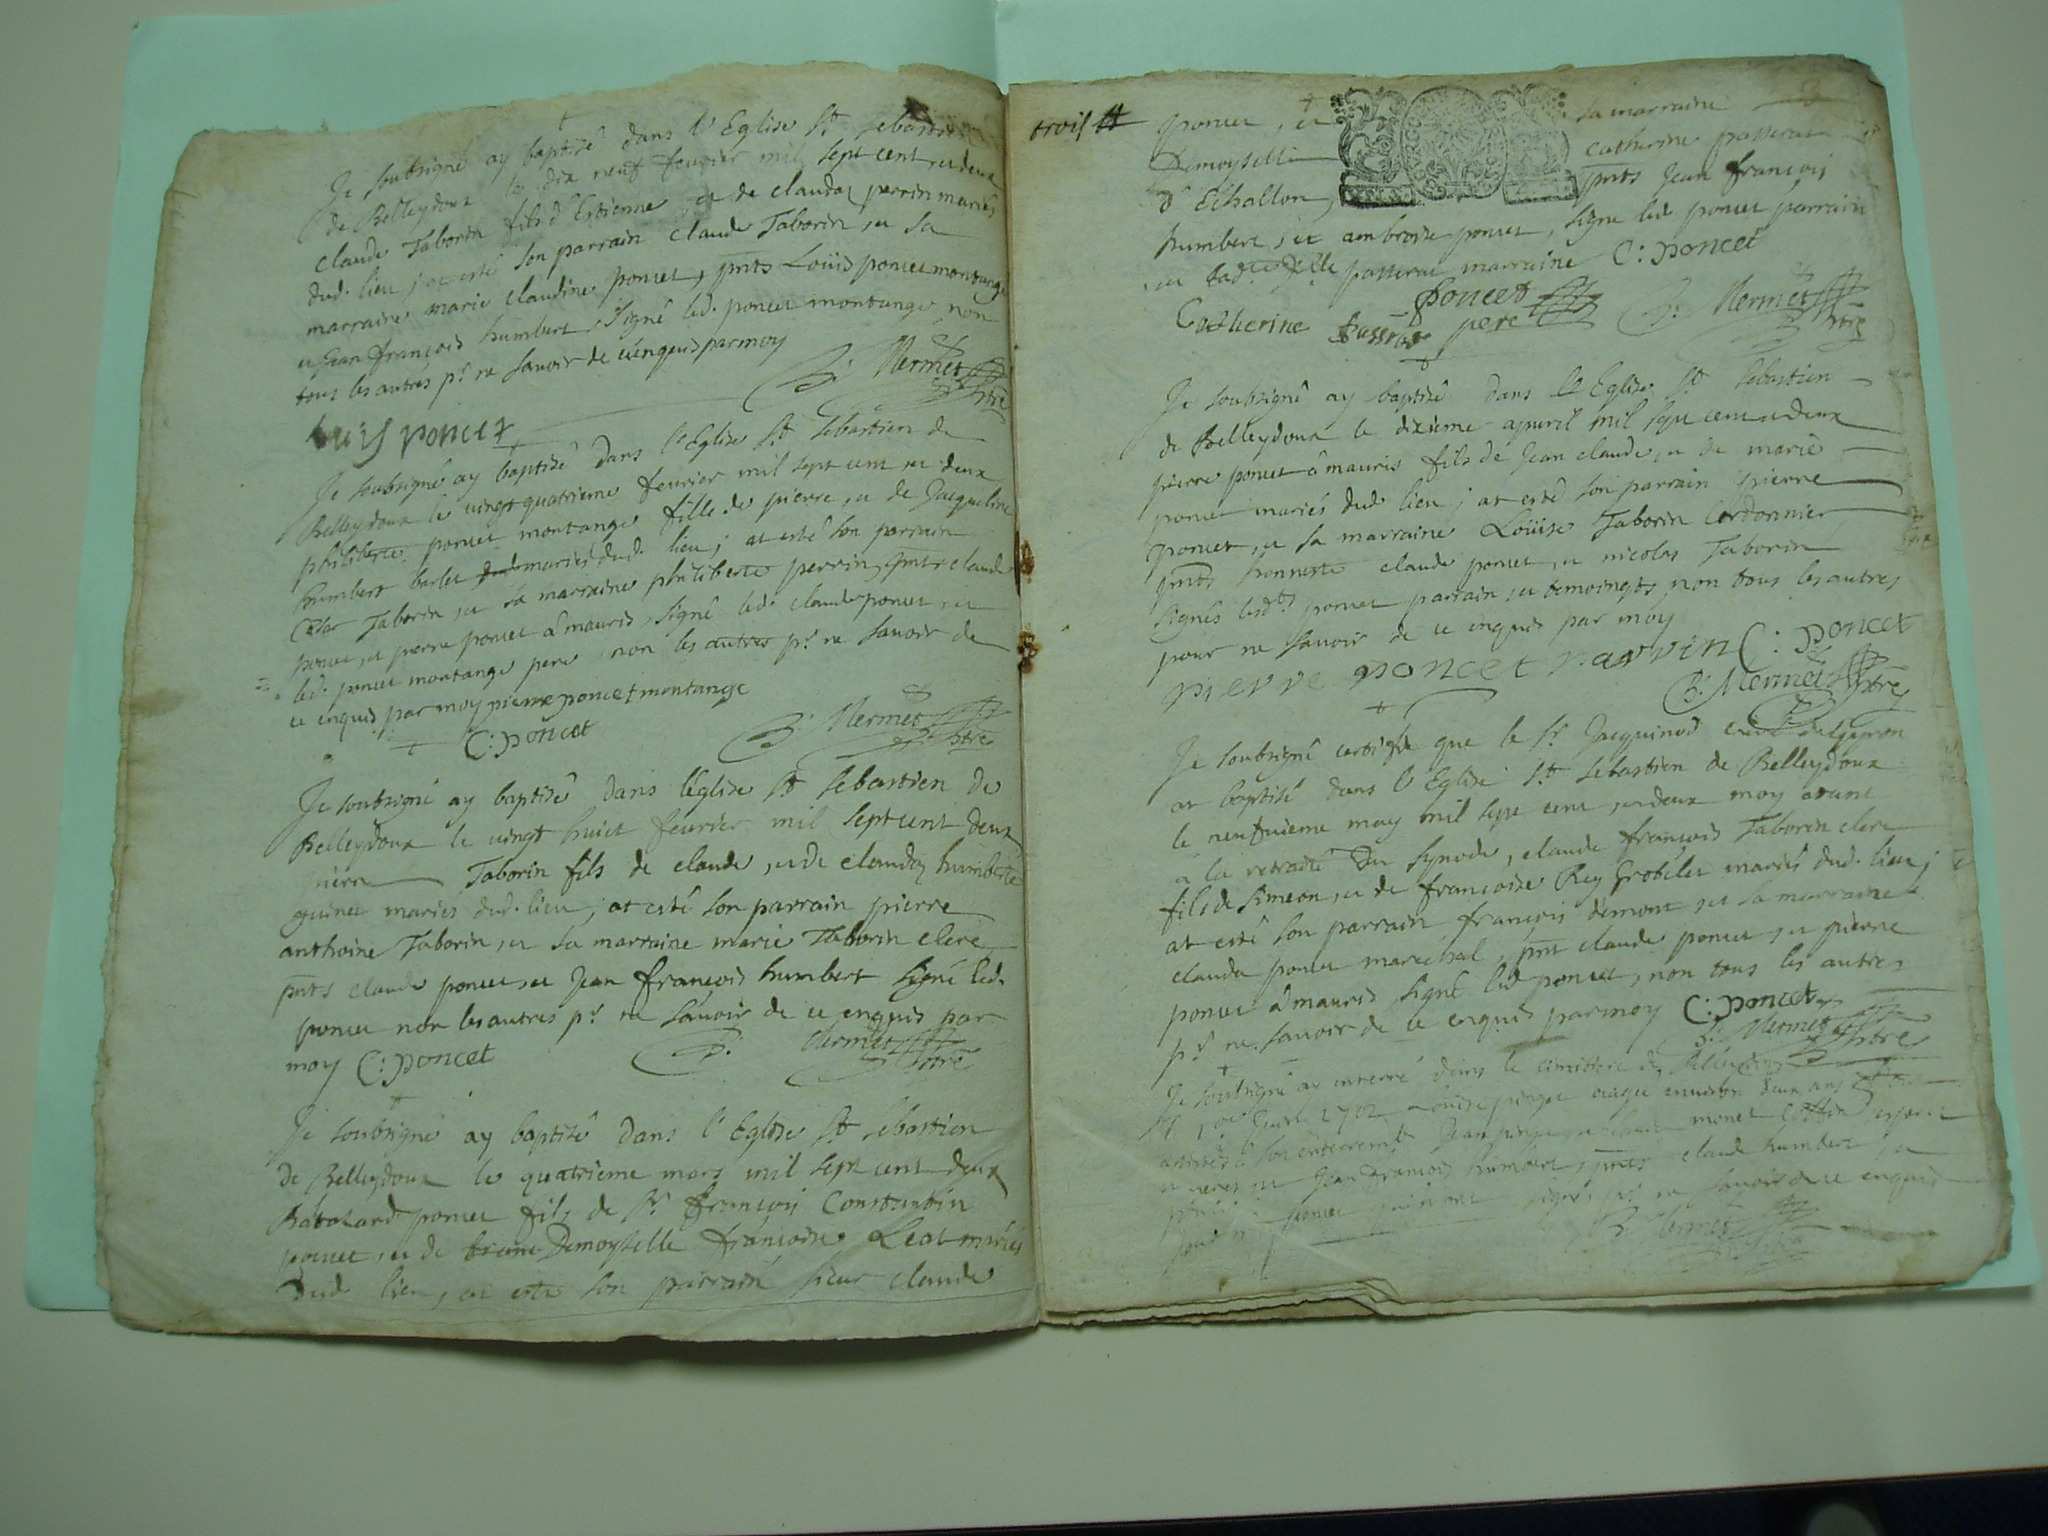 Je soubsigné ay baptisé dans l'Eglise St Sebastien
de Belleydoux le dix neuf feuvrier mil sept cent et deux
claude Taborin fils d'Estienne et de claudaz perrin mariés
dud. lieu, at esté son parrain claude Taborin et sa
marraine marie claudine poncet, pnts Loüis poncet montange
et Jean françois humbert, signé led. poncet montange non
tous les autres pr ne savoir de ce enquis par moy
B. Mermet ptre
Luis poncet
Je soubsigné ay baptisé dans l'Eglise St Sebastien de
Belleydoux le vingt quatrieme fevrier mil sept cent et deux
philiberte poncet montange fille de pierre, et de Jacqueline
humbert barlet mariés dud. lieu; at esté son parrain
Cesar Taborin et sa marraine philiberte perrin, pnts claude
poncet, et pierre poncet â mauris, signé led. claude poncet, et
led. poncet montange pere non les autres pr ne savoir de
ce enquis par moy pierre poncet montange
C: poncet B. Mermet ptre
Je soubsigné ay baptisé dans léglise St Sebastien de
Belleydoux le vingt huict feuvrier mil sept cent deux
Taborin fils de claude, et de claudaz humbert
guinet mariés dud. lieu; at esté son parrain pierre
anthoine Taborin, et sa marraine marie Taborin clerc
pnts claude poncet, et Jean françois humbert signé led.
poncet non les autres pr ne savoir de ce enquis par
moy C: poncet B. Mermet ptre
Je soubsigné ay baptisé dans l'Eglise St Sebastien
de Belleydoux le quatrieme mars mil sept cent deux
poncet fils de Sr françois Constantin
poncet, et de Demoyselle françoise Leat mariés
dud. lieu, at esté son parrain sieur claude
trois tt
poncet, et sa marraine
Demoyselle catherine passerat
d'Echallon, pnts Jean françois
humbert, et ambroise poncet, signé led. poncet parrain
et lad. dlle passerat marraine C: poncet
Catherine passerat poncet pere B. Mermet ptre
Je soubsigné ay baptisé dans l'Eglise St Sebastien
de Belleydoux le dixieme apvril mil sept cent et deux
pierre poncet â mauris fils de Jean claude, et de marie
poncet mariés dud. lieu; at esté son parrain pierre
poncet, et sa marraine Loüise Taborin Cordonnier
pnts honneste claude poncet, et nicolas Taborin
signés lesdts poncet parrain, et temoingts, non tous les autres
pour ne savoir de ce enquis par moy
pierre poncet parrin C: poncet
B. Mermet ptre
Je soubsigné certifie que le Sr Jacquinod curé
at baptisé dans l'Eglise St Sebastien de Belleydoux
le neufvieme may mil sept cent et deux moy etant
a la retraite du synode, claude françois Taborin clerc
fils de Simeon, et de françoise Rey Grobelet mariés dud. lieu;
at esté son parrain françois demont, et sa marraine
clauda poncet marechal, pnt claude poncet, et pierre
poncet â mauris, signé led poncet, non tous les autres
pr ne savoir de ce enquis par moy C: poncet
B. Mermet ptre
Je soubsigné ay enterré dans le cimittere de Belleydoux
1702 Loüise agée environ deux ans
son enterremt Jean
Jean françois humbert, pnts claude humbert, et
poncet signés pr ne savoir de ce enquis
B. Mermet